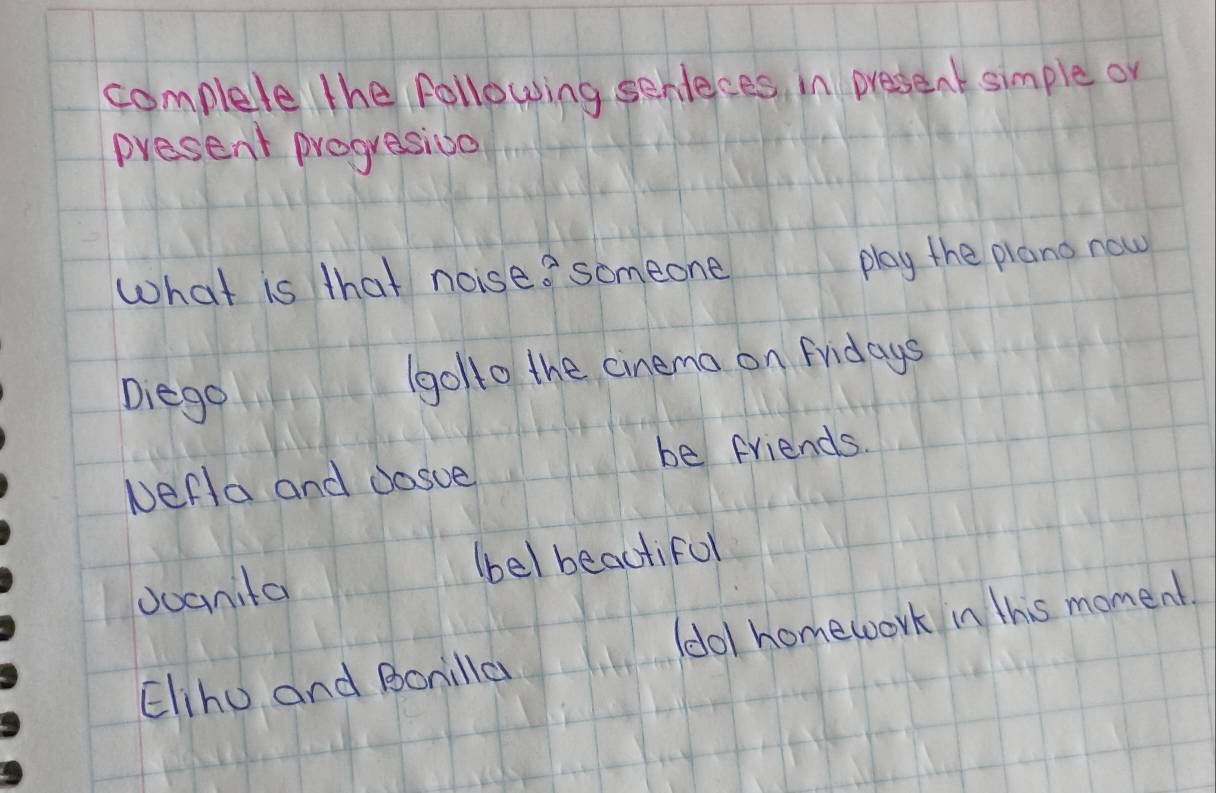 complete the following senteces in present simple or
present progresivo
What is that noise? someone play the piano now
Diego (go) to the cinema on fridays
Nefta and Josue be friends.
Juanita (be) beautiful
Elihu and Bonilla (do) homework in this moment.